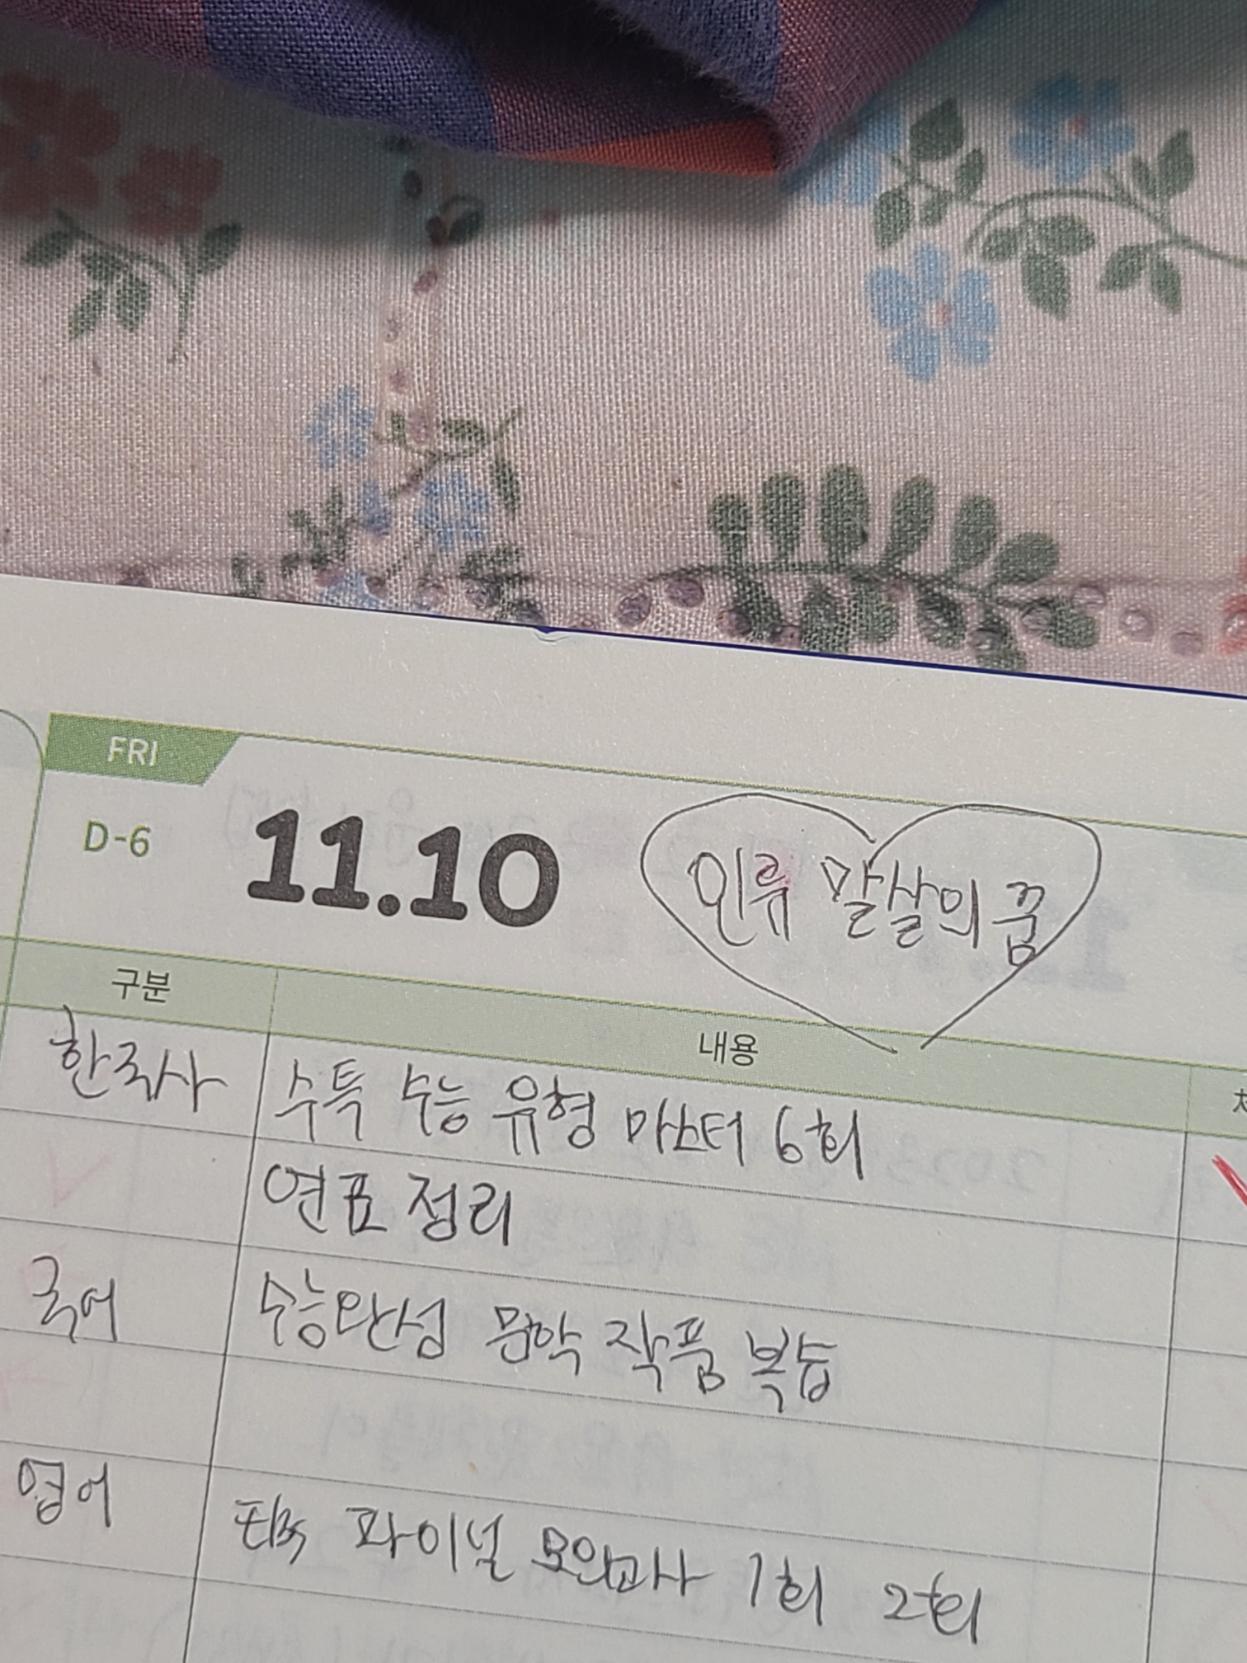 FRI
D-6
11.10
인류 말살의 꿈
구분
내용
한국사
수특 수능 유형 마스터 6회
연표 정리
국어
수능완성 문학 작품 복습
영어
EBS 파이널 모의고사 1회 2회